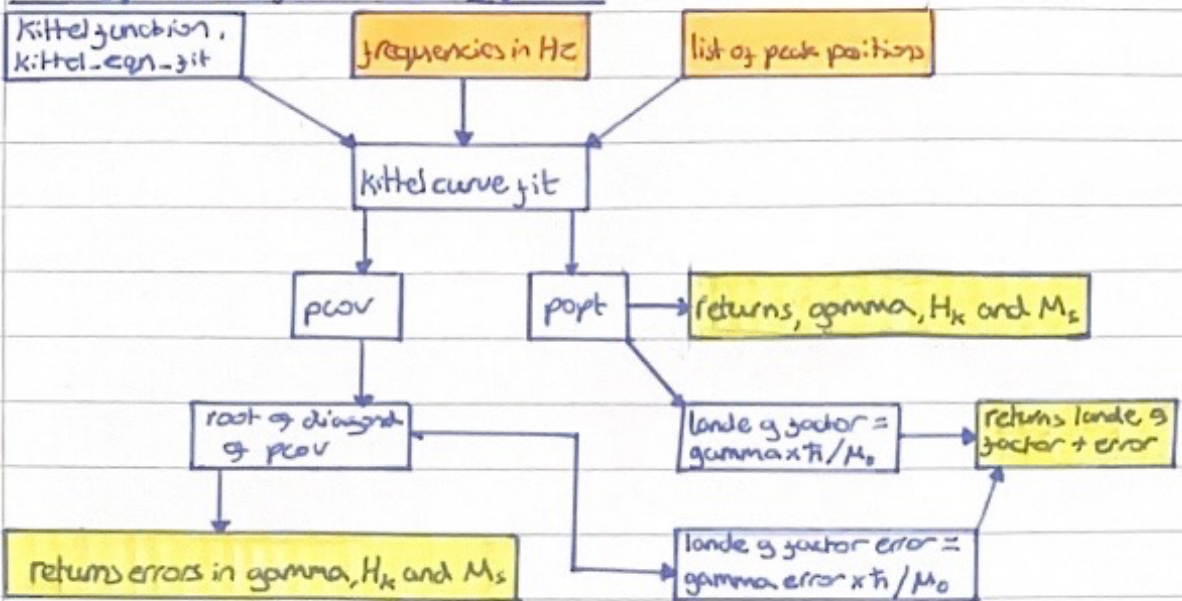 Kittel function,
kittel_eqn_fit
frequencies in Hz
list of peak positions
kittel curve fit
pcov
popt
returns, gamma, Hₖ and Mₛ
root of diagonal
of pcov
lande g factor =
gamma × ħ/μ₀
returns lande g
factor + error
returns errors in gamma, Hₖ and Mₛ
lande g factor error =
gamma error × ħ/μ₀